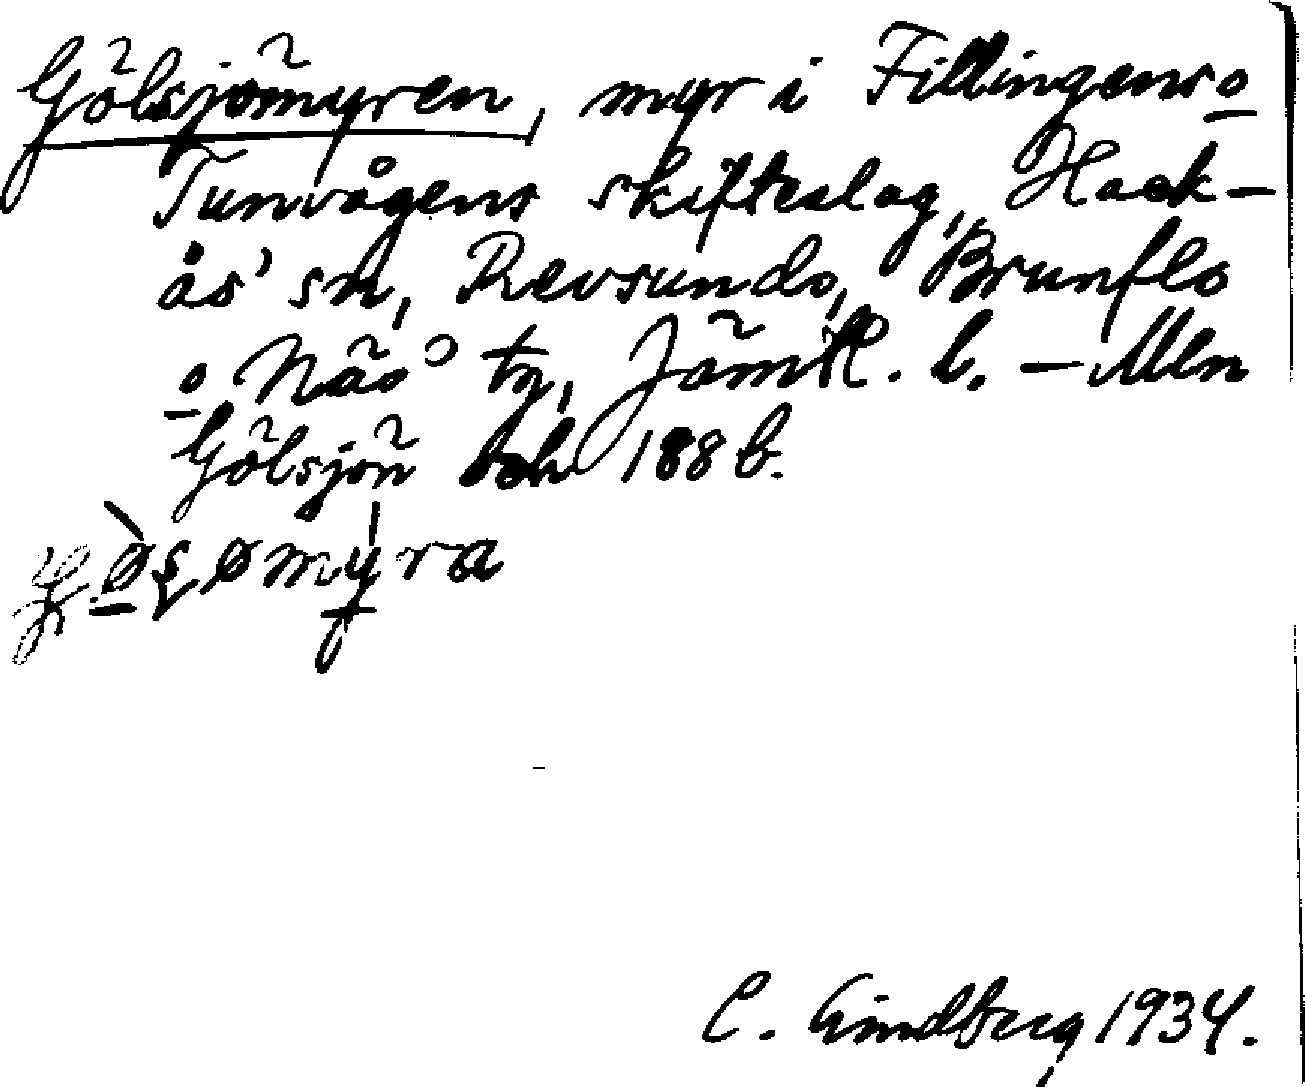 Gölsjömyren, myr i Fillingens o
Tunvågens skifteslag, Hack-
ås' sn, Revsunds, Brunflo
o Näs tg, Jämtl. l. – Mln
Gölsjön och 188 b.
C. Lindberg 1934.